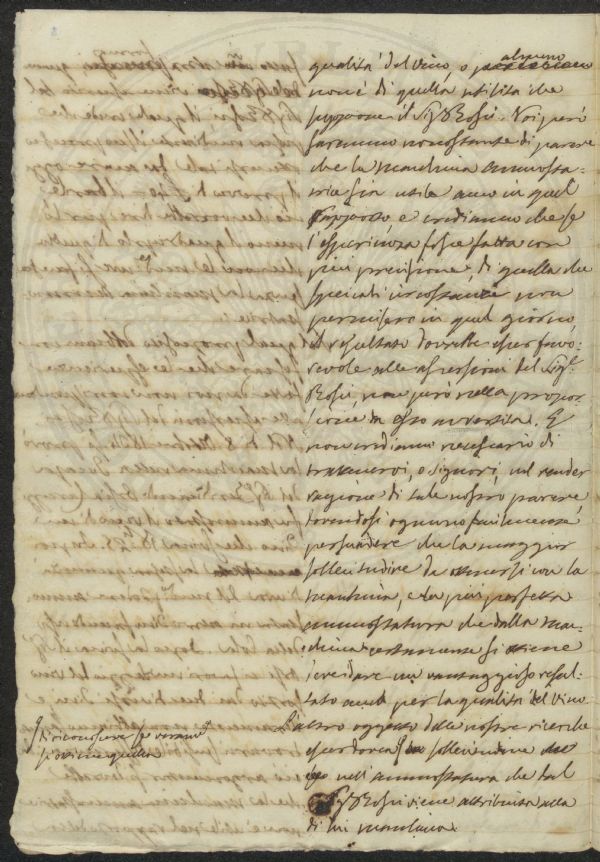 qualità del Vino, o almeno
non è di quella utilità che
suppone il Sigr Rossi. Noi però
saremmo nonostante di parere
che la macchina ammosta-
ria sia utile anco in quel
rapporto, e crediamo che se
l'esperienza fosse fatta con
più precisione, di quella che
speciali circostanze non
permisero in quel giorno,
il resultato dovrebbe esser favo-
revole alle asserzioni del Sigr
Rossi, non però nella propor-
zione da esso avvertita. E
non crediamo necessario di
trattenervi, o Signori, nel render
ragione di tale nostro parere,
potendosi ognuno facilmente
persuadere che la maggior
sollecitudine da aversi con la
macchina, e la più perfetta
ammostatura che dalla mac-
china certamente si ottiene
creder un vantaggioso resul-
tato anco per la qualità del Vino
L'altro oggetto delle nostre ricerche
esser doveva sollecitudine
nell'ammostatura che dal
Sigr Rossi viene attribuita alla
di lui macchina.
di riconoscere se veramte
si ottiene quella